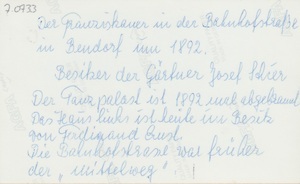 7.0733
Der Franziskaner in der Bahnhofstraße
in Bendorf um 1892.
Besitzer der Gärtner Josef
Der Tanzpalast ist 1892 abgebrannt
Das Haus links ist heute im Besitz
von Ferdinand Ernst.
Die Bahnhofstrasse war früher
der „Mittelweg"